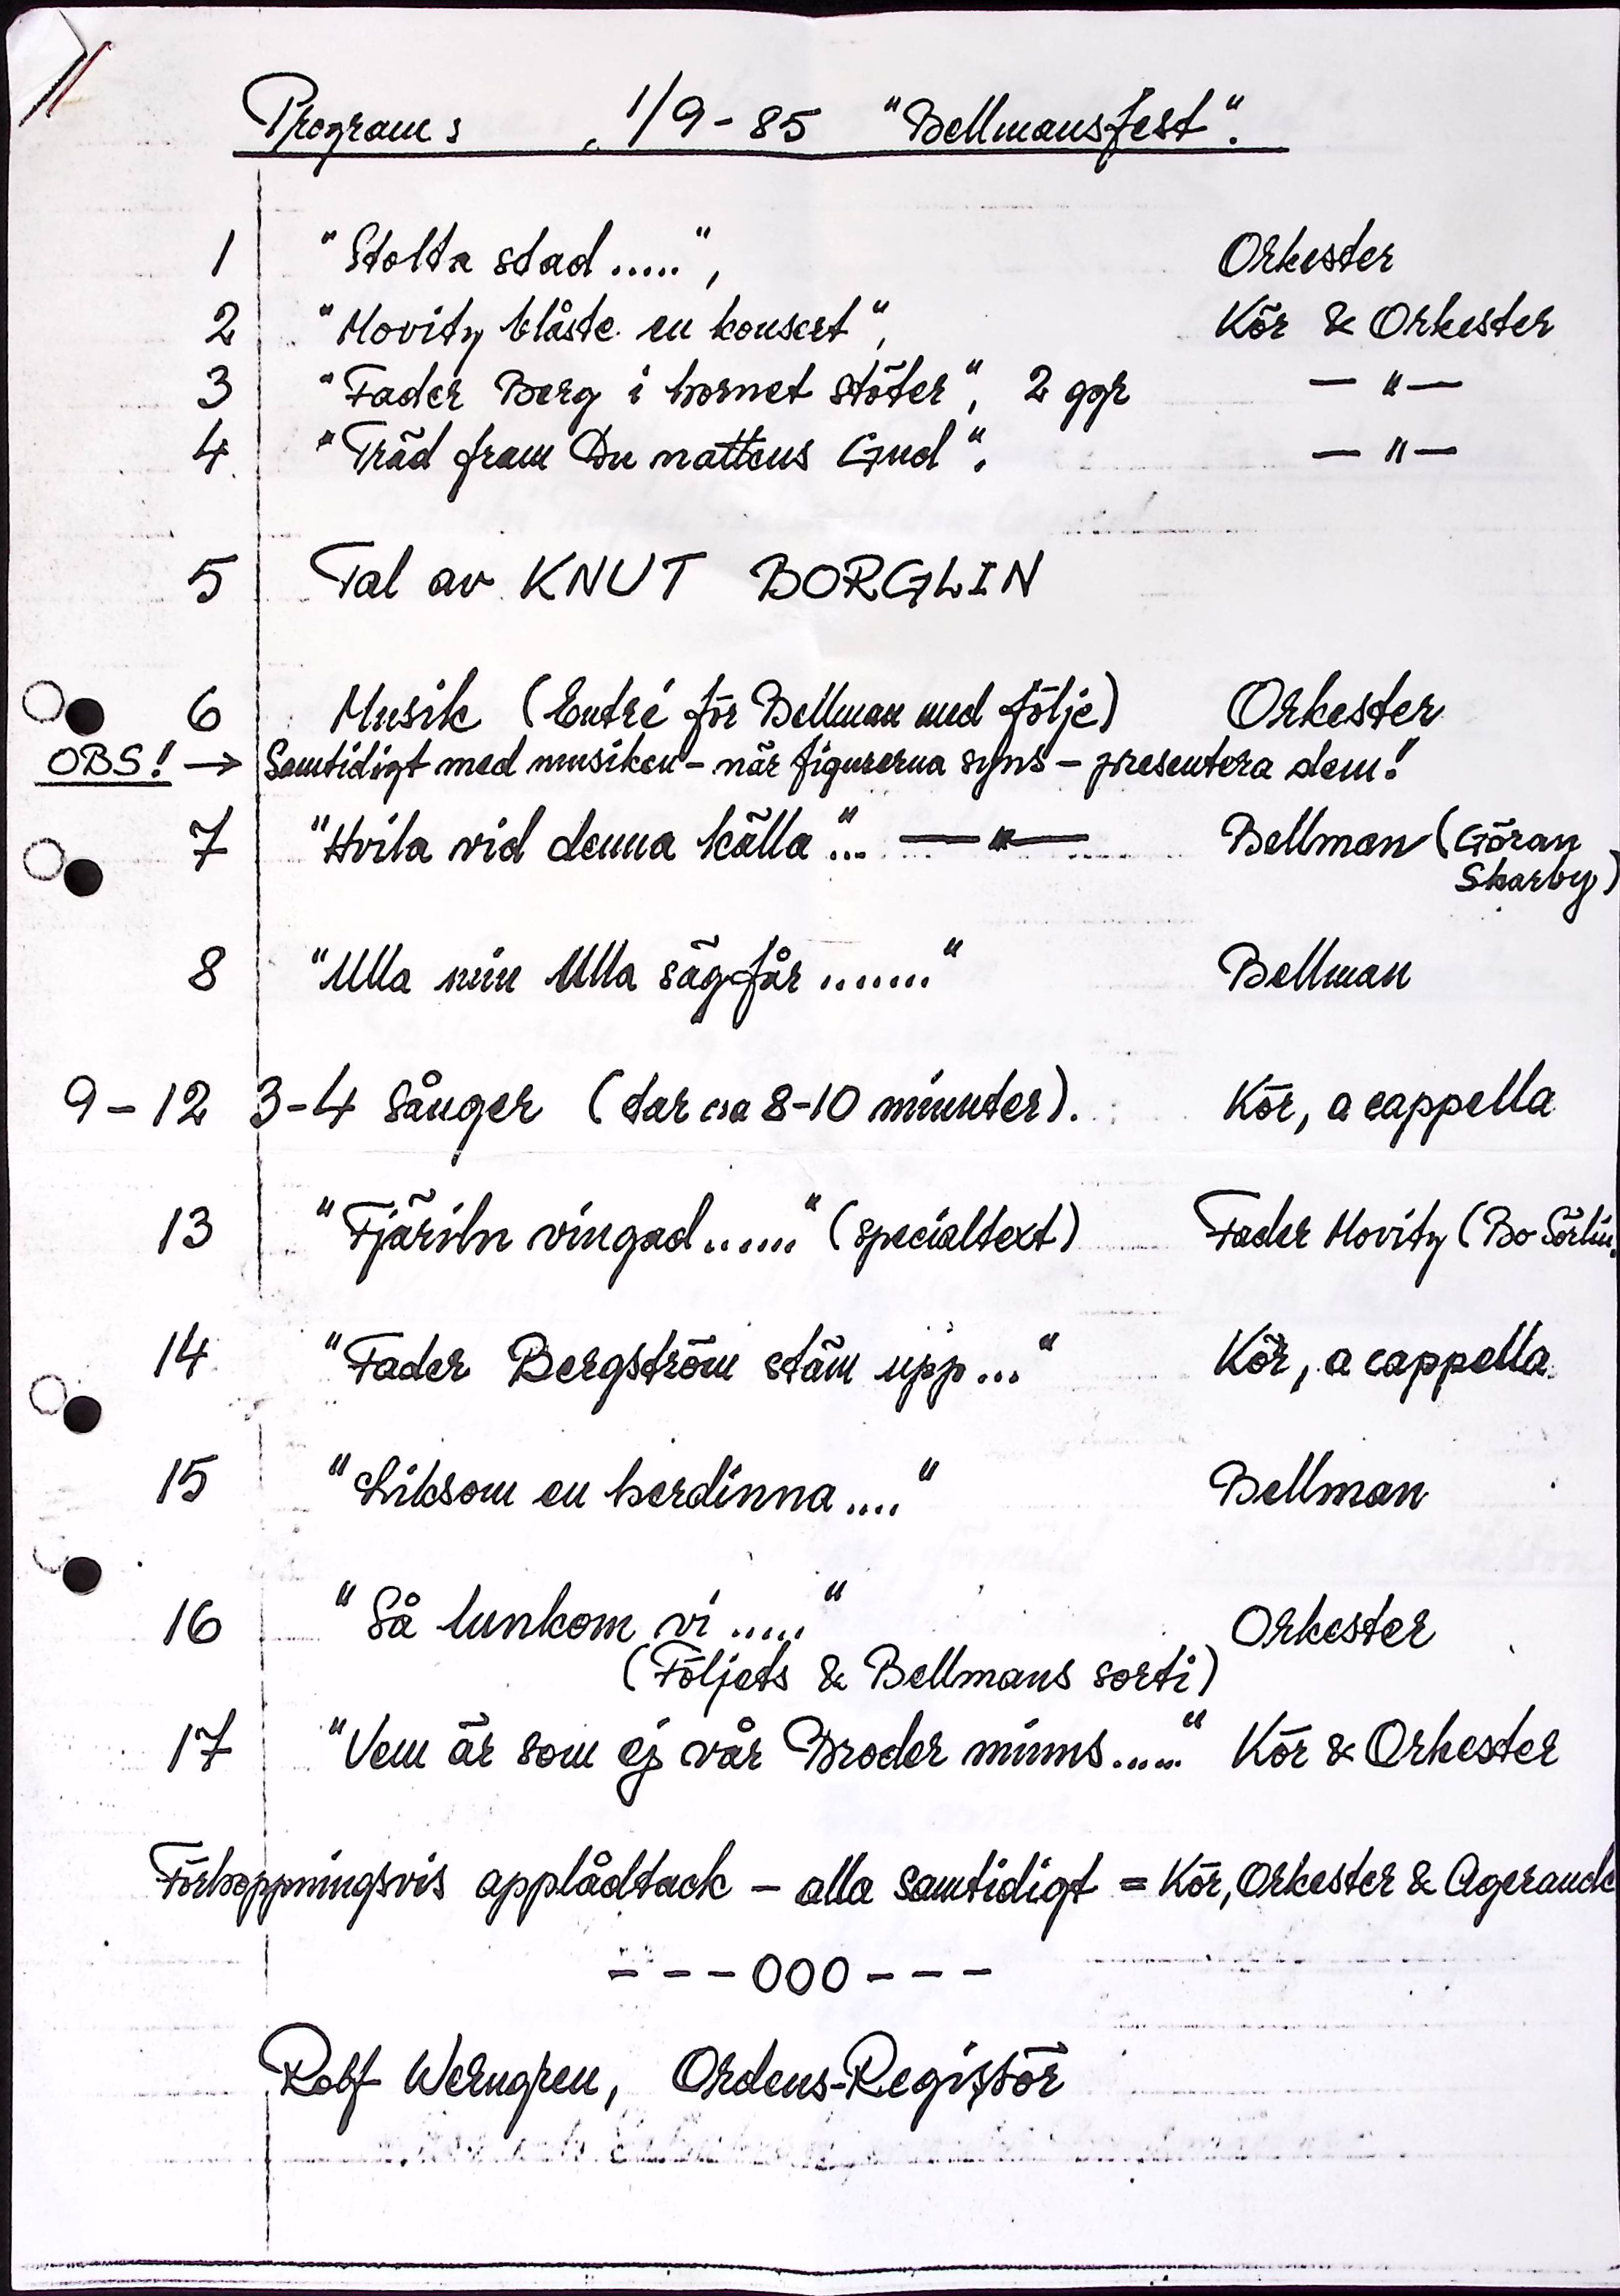 Program: 1/9-85 "Bellmansfest".
1 "Stolta stad.....", Orkester
2 "Movitz blåste en konsert", Kör & Orkester
3 "Fader Berg i hornet stöter", 2 ggr — " —
4 "Träd fram Du nattens Gud". — " —
5 Tal av KNUT BORGLIN
6 Musik (Entré för Bellman med följe) Orkester
OBS! → Samtidigt med musiken - när figurerna syns - presentera dem!
7 "Hvila vid denna källa"... — " — Bellman (Göran
Skarby)
8 "Ulla min Ulla säg får......." Bellman
9-12 3-4 sånger (tar ca 8-10 minuter). Kör, a cappella
13 "Fjäriln vingad......" (specialtext) Fader Movitz (Bo Sörlin
14 "Fader Bergström stäm upp..." Kör, a cappella
15 "Liksom en herdinna...." Bellman
16 "Så lunkom vi....." Orkester
(Följets & Bellmans sorti)
17 "Vem är som ej vår Broder minns......" Kör & Orkester
Förhoppningsvis applådtack - alla samtidigt = Kör, Orkester & Agerande
- - - 000 - - -
Rolf Werngren, Ordens-Registör